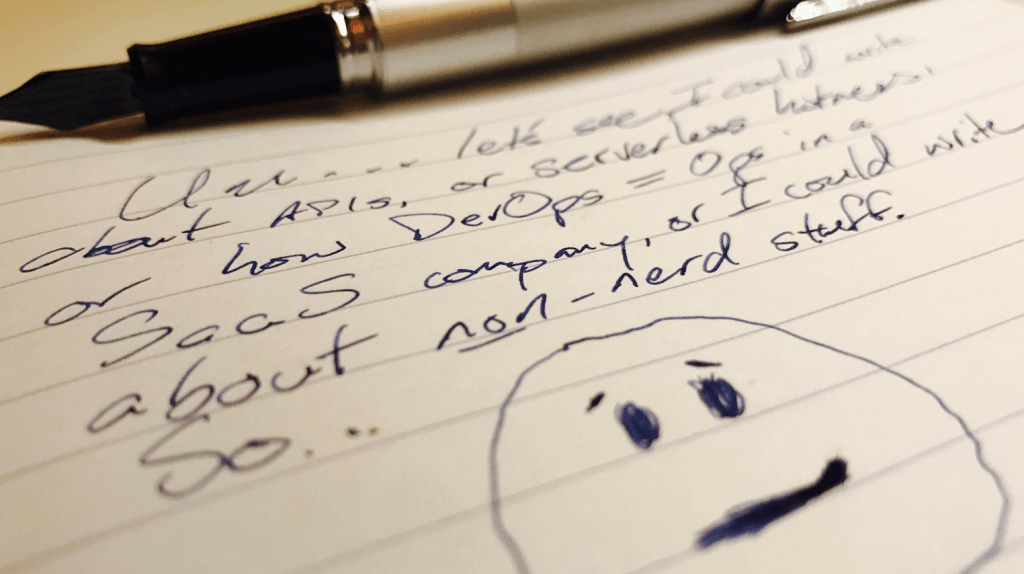 Um.... let's see, I could write
about APIs, or serverless hotness,
or how DevOps = Ops in a
SaaS company, or I could write
about non-nerd stuff.
So...